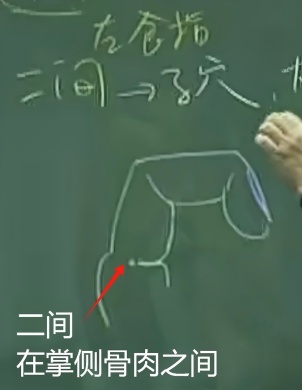 左食指
二间→子穴，
二间
在掌侧骨肉之间